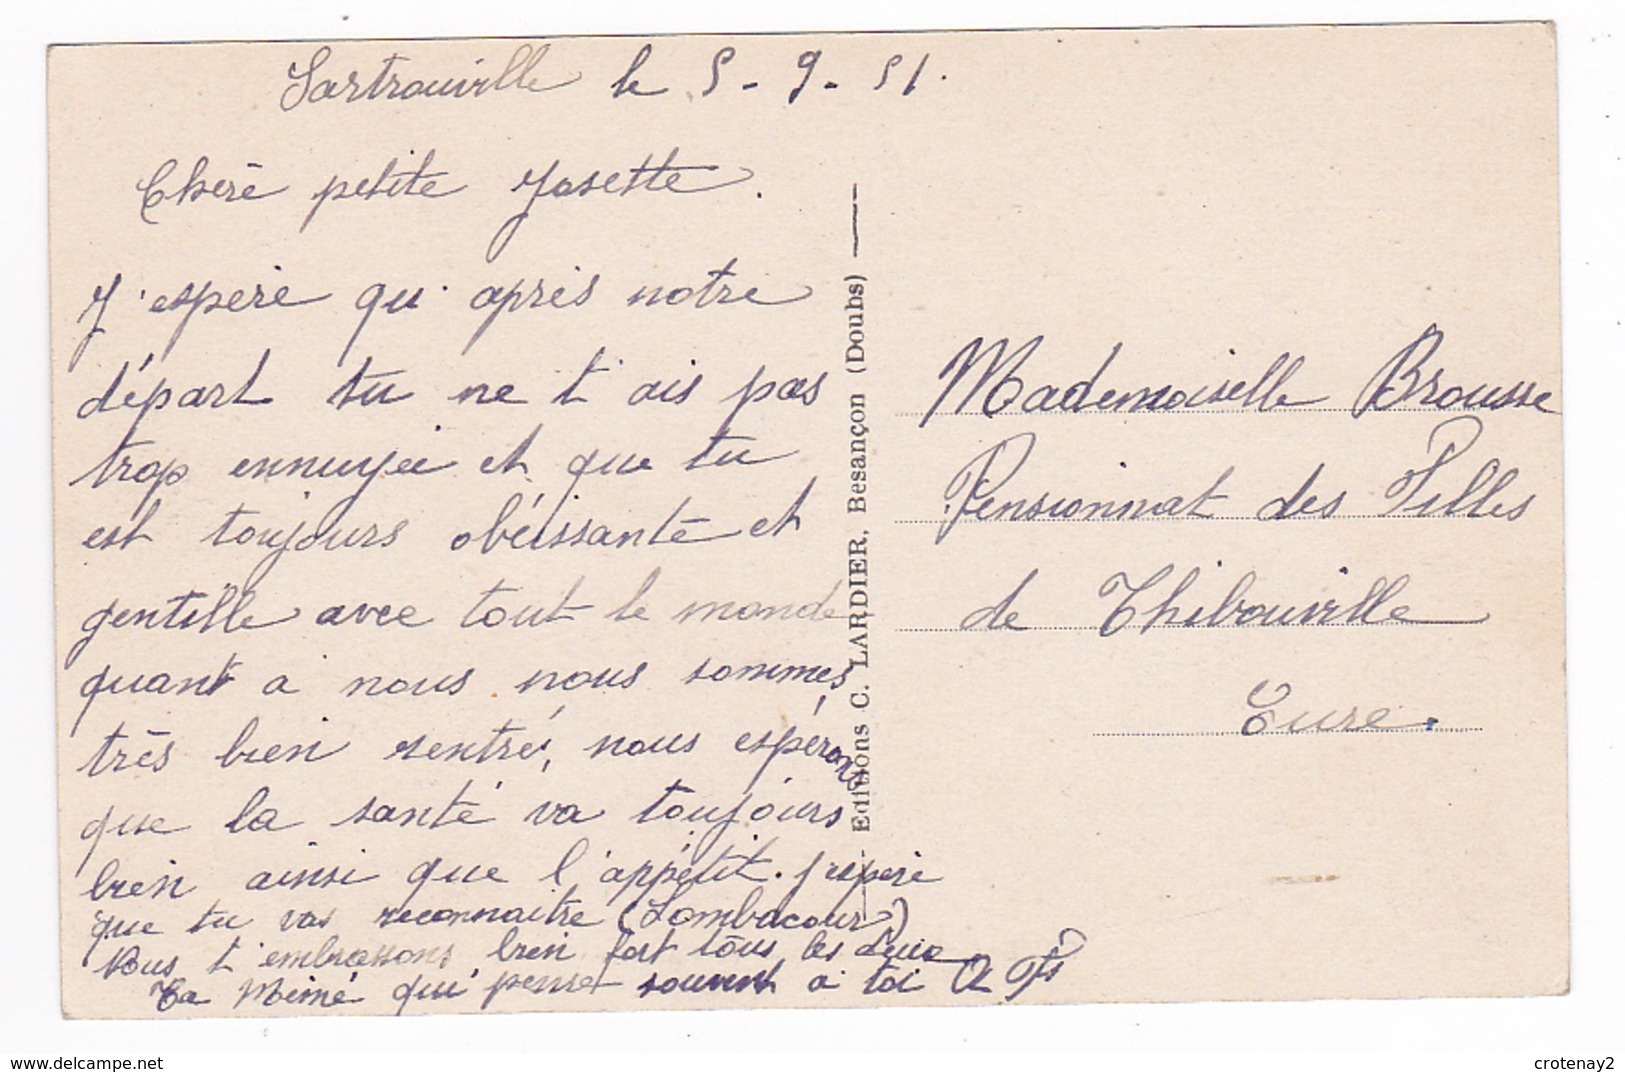 Sartrouville le 5-9-51.
Chère petite Josette.
J'espère qu'après notre
départ tu ne t'ais pas
trop ennuyée et que tu
est toujours obéissante et
gentille avec tout le monde
quant a nous nous sommes
très bien rentrés, nous espérons
que la santé va toujours
bien ainsi que l'appétit. J'espère
que tu vas reconnaitre (Lombacour)
Nous t'embrassons bien fort tous les deux
Ta Mémé qui pense souvent a toi
Editions C. LARDIER, Besançon (Doubs)
Mademoiselle Brousse
Pensionnat des Filles
de Thibouville
Eure.
delcampe.net
crotenay2